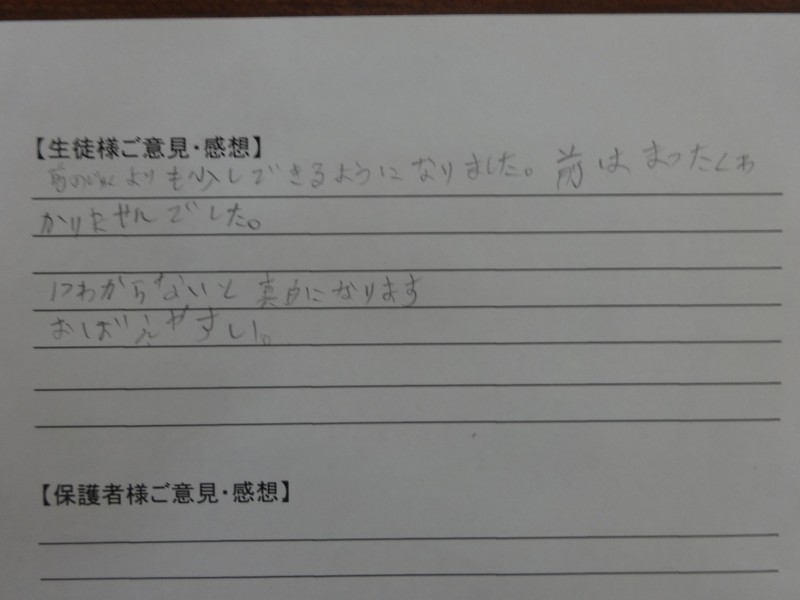 【生徒様ご意見・感想】
よりも少しできるようになりました。前はまったくわ
かりませんでした。
わからないと真白になります
おぼえやすい。
【保護者様ご意見・感想】